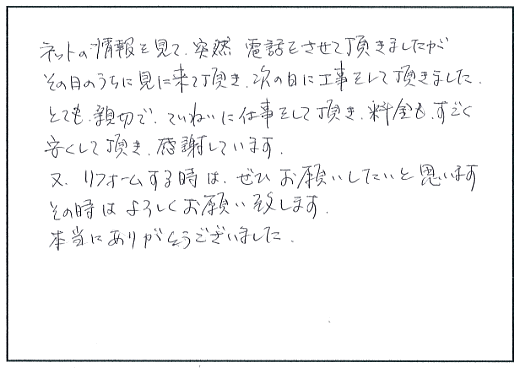 ネットの情報を見て、突然 電話をさせて頂きましたが
その日のうちに見に来て頂き、次の日に工事をして頂きました。
とても、親切で、ていねいに仕事をして頂き、料金も、すごく
安くして頂き、感謝しています。
又、リフォームする時は、ぜひ お願いしたいと思います
その時は よろしくお願い致します。
本当にありがとうございました。